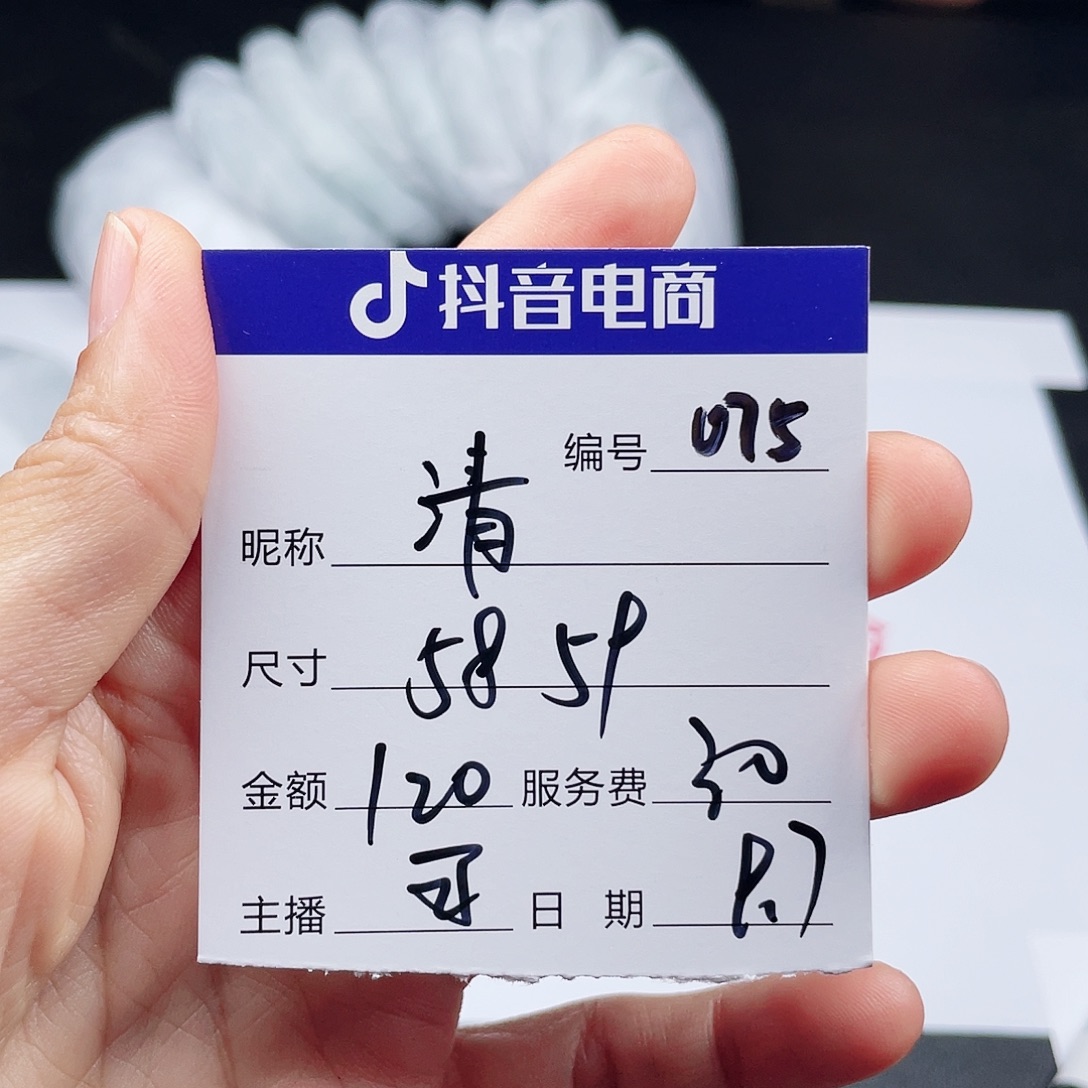 抖音电商
编号 075
昵称 清
尺寸 58 59
金额 120 服务费
主播 日 期